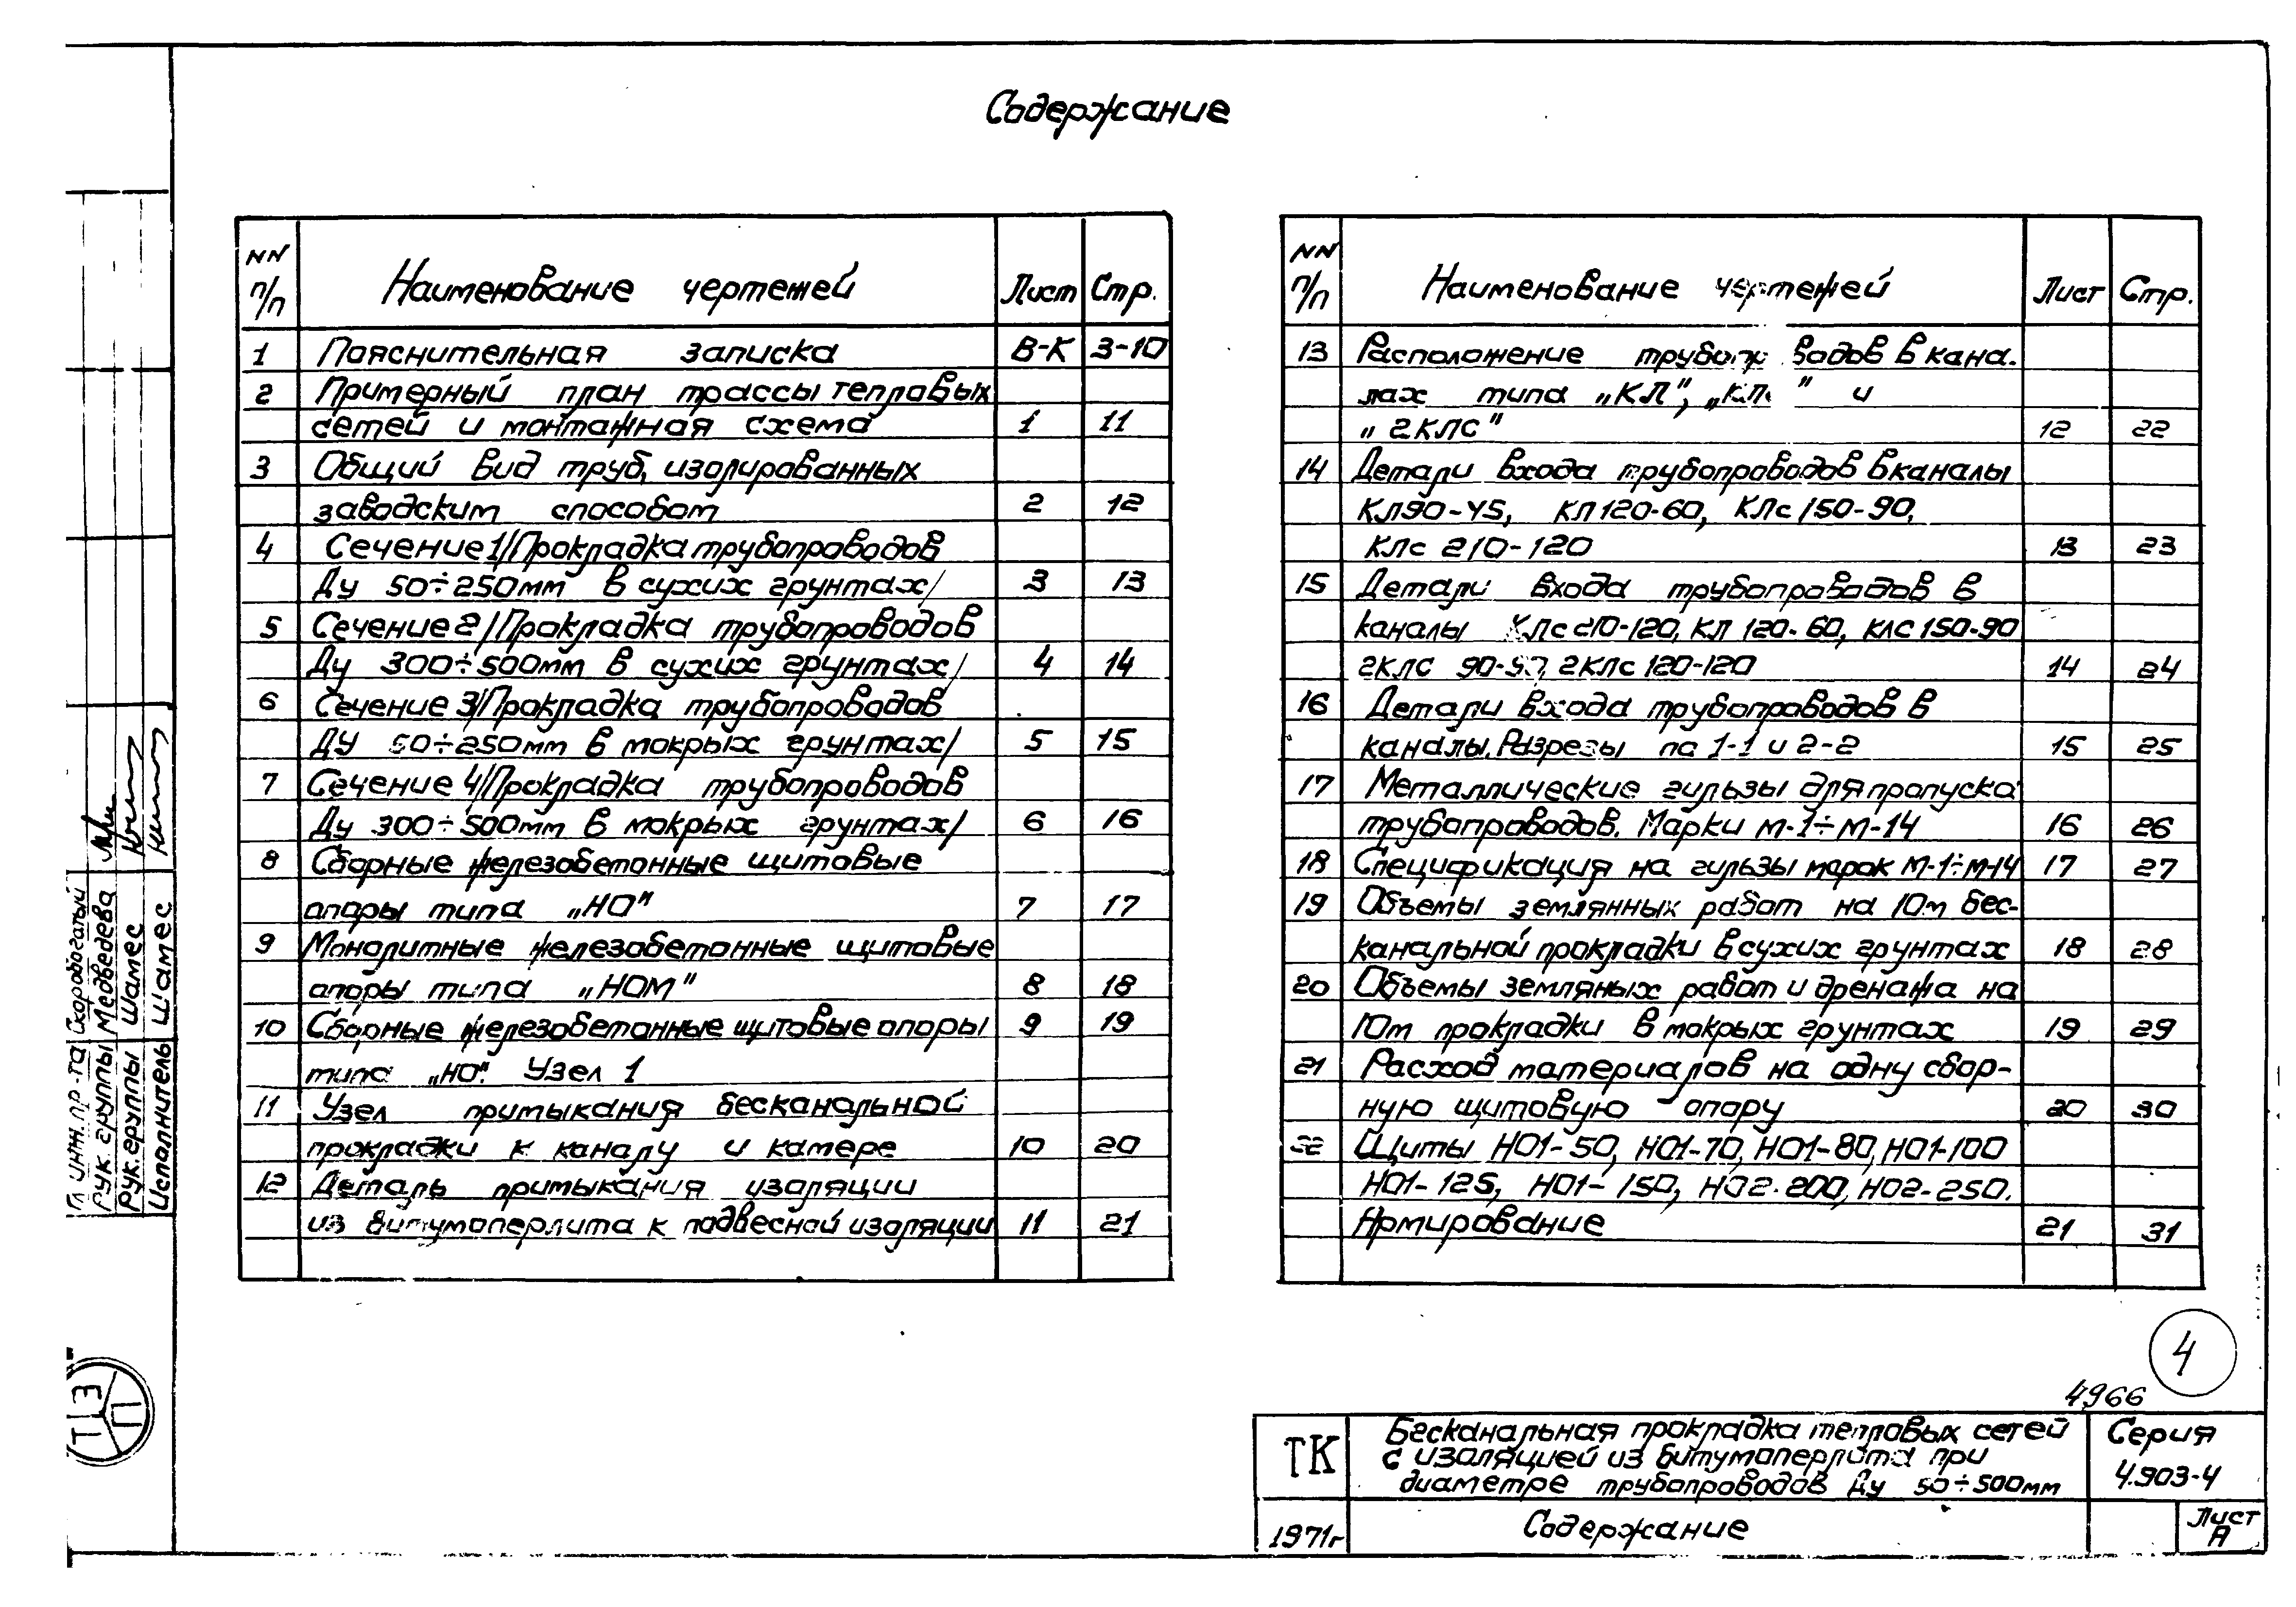 Содержание
NN п/п Наименование чертежей Лист Стр.
1 Пояснительная записка В-К 3-10
2 Примерный план трассы тепловых
сетей и монтажная схема 1 11
3 Общий вид труб, изолированных
заводским способом 2 12
4 Сечение 1/Прокладка трубопроводов
Ду 50÷250мм в сухих грунтах/ 3 13
5 Сечение 2/Прокладка трубопроводов
Ду 300÷500мм в сухих грунтах/ 4 14
6 Сечение 3/Прокладка трубопроводов
Ду 50÷250мм в мокрых грунтах/ 5 15
7 Сечение 4/Прокладка трубопроводов
Ду 300÷500мм в мокрых грунтах/ 6 16
8 Сборные железобетонные щитовые
опоры типа „НО" 7 17
9 Монолитные железобетонные щитовые
опоры типа „НОМ" 8 18
10 Сборные железобетонные щитовые опоры 9 19
типа „НО". Узел 1
11 Узел примыкания бесканальной
прокладки к каналу и камере 10 20
12 Деталь примыкания изоляции
из битумоперлита к подвесной изоляции 11 21
NN п/п Наименование чертежей Лист Стр.
13 Расположение трубопроводов в кана-
лах типа „КЛ", „КЛс" и
„2КЛС" 12 22
14 Детали входа трубопроводов в каналы
КЛ90-45, КЛ120-60, КЛс150-90,
КЛс 210-120 13 23
15 Детали входа трубопроводов в
каналы КЛс210-120, КЛ 120-60, КЛС 150-90
2КЛС 90-90, 2КЛС 120-120 14 24
16 Детали входа трубопроводов в
каналы. Разрезы по 1-1 и 2-2 15 25
17 Металлические гильзы для пропуска
трубопроводов. Марки М-1÷М-14 16 26
18 Спецификация на гильзы марок М-1÷М-14 17 27
19 Объемы землянных работ на 10м бес-
канальной прокладки в сухих грунтах 18 28
20 Объемы земляных работ и дренажа на
10м прокладки в мокрых грунтах 19 29
21 Расход материалов на одну сбор-
ную щитовую опору 20 30
22 Щиты НО1-50, НО1-70, НО1-80, НО1-100
НО1-125, НО1-150, НО2-200, НО2-250.
Армирование 21 31
Гл. инж. пр-та Скоробогатый
Рук. группы Медведева
Рук. группы Шамес
Исполнитель Шамес
Т Э П
4
4966
ТК
Бесканальная прокладка тепловых сетей
с изоляцией из битумоперлита при
диаметре трубопроводов Ду 50÷500мм
Серия
4.903-4
1971г
Содержание
Лист
А